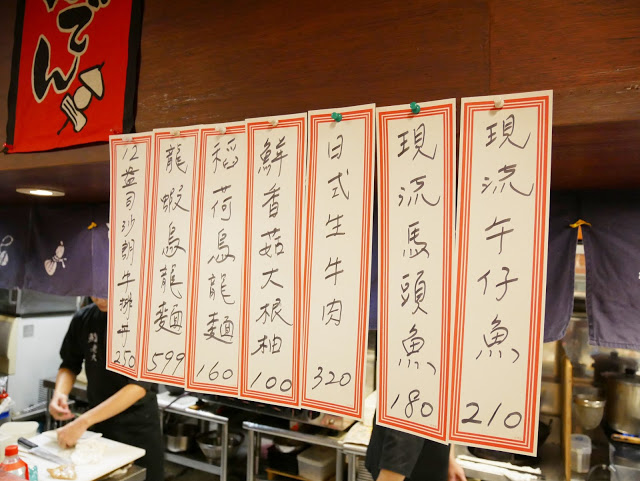 現流午仔魚 210
現流馬頭魚 180
日式生牛肉 320
鮮香菇大根柚 100
稻荷烏龍麵 160
龍蝦烏龍麵 599
12盎司沙朗牛排丼 250
でん